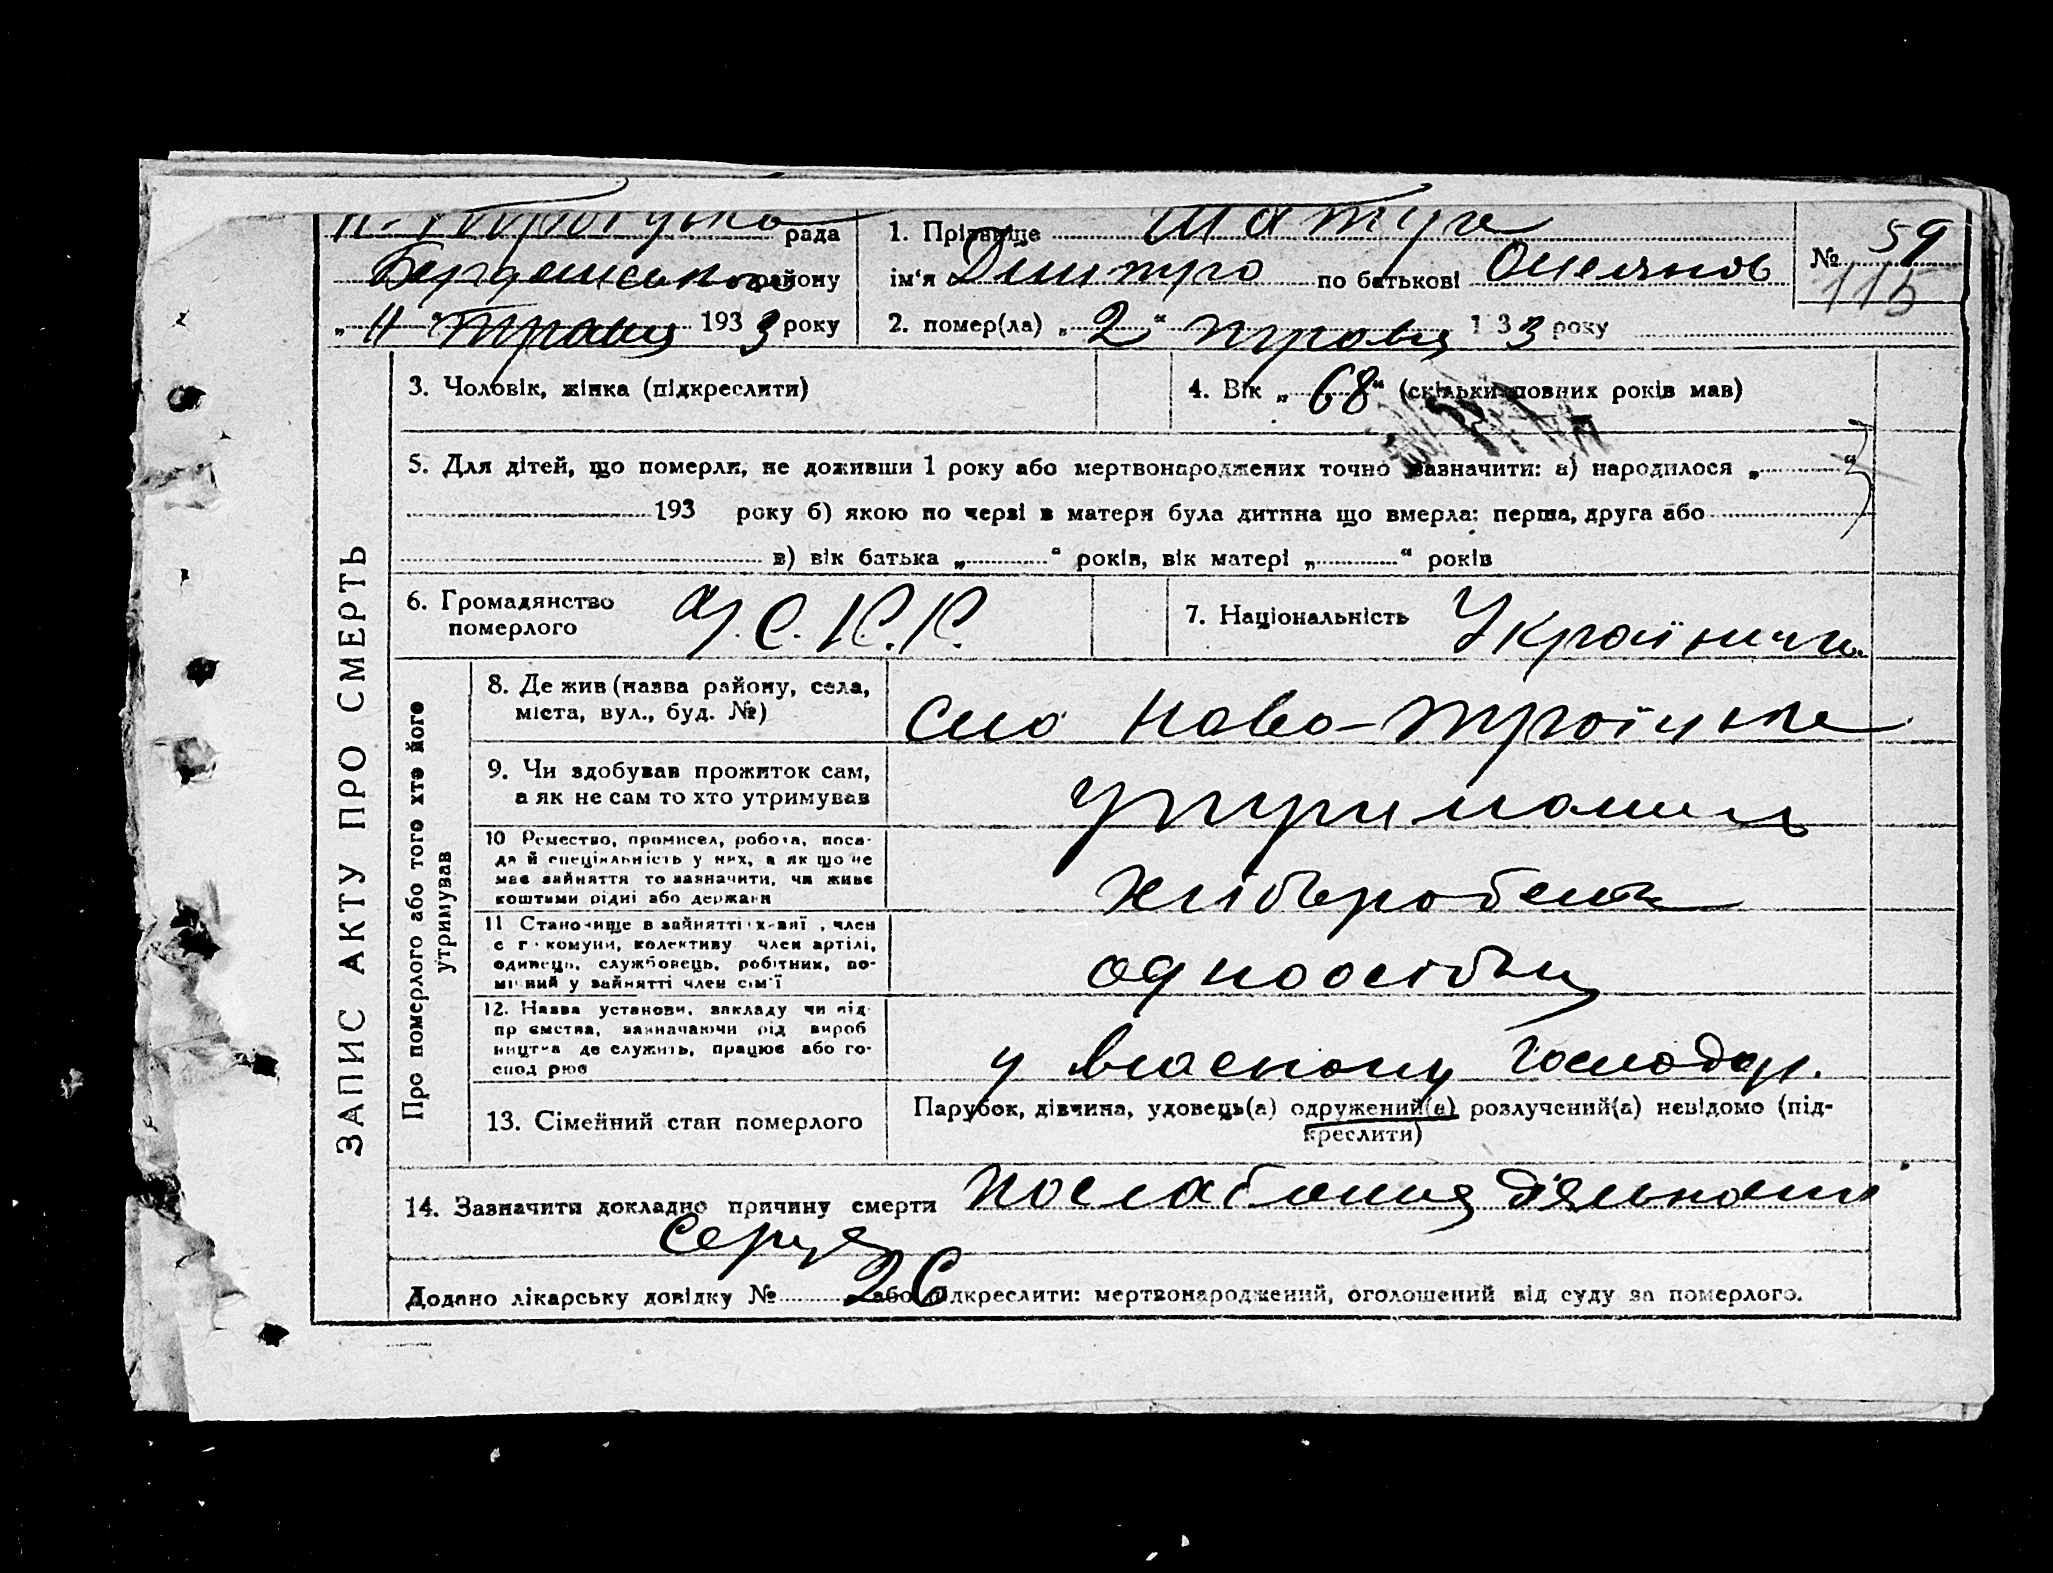 Н. Троїцька рада
Бердянського району
„ 11 " Травня 1933 року
1. Прізвище
ім'я Дмитро по батькові Омелянов
№ 59
115
2. помер(ла) „ 2 " травня 1 33 року
3. Чоловік, жінка (підкреслити)
4. Вік „ 68 " (скільки повних років мав)
5. Для дітей, що померли, не доживши 1 року або мертвонароджених точно зазначити: а) народилося „ "
193 року б) якою по черзі в матери була дитина що вмерла: перша, друга або
в) вік батька „ " років, вік матері „ " років
6. Громадянство
померлого
У.С.Р.Р.
7. Національність
ЗАПИС АКТУ ПРО СМЕРТЬ
Про померлого або того хто його
утримував
8. Де жив (назва району, села,
міста, вул., буд. №)
село Ново-Троїцьке
9. Чи здобував прожиток сам,
а як не сам то хто утримував
10 Ремество, промисел, робота, поса-
да й спеціяльність у них, а як що не
має зайняття то зазначити, чи живе
коштами рідні або держави
хлібороб
11 Становище в зайнятті член
с г комуни, колективу член артілі,
одинець, службовець, робітник, по-
мічний у зайнятті член сім'ї
одноосібн
12. Назва установи, закладу чи під
пр ємства, зазначаючи рід вироб
ництва де служить, працює або го-
спод рює
у власному господар.
13. Сімейний стан померлого
Парубок, дівчина, удовець(а) одружений(а) розлучений(а) невідомо (під-
креслити)
14. Зазначити докладно причину смерти послаблення діяльности
серця
Додано лікарську довідку № 26 або підкреслити: мертвонароджений, оголошений від суду за померлого.